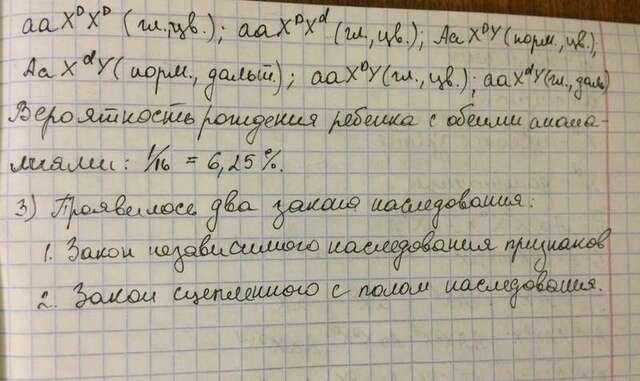 aaXᴰXᴰ (гл., цв.); aaXᴰXᵈ (гл., цв.); AaXᴰY (норм., цв.),
AaXᵈY (норм., дальт.); aaXᴰY (гл., цв.); aaXᵈY (гл., даль)
Вероятность рождения ребенка с обеими анома-
лиями: 1/16 = 6,25%.
3) Проявилось два закона наследования:
1. Закон независимого наследования признаков
2. Закон сцепленного с полом наследования.